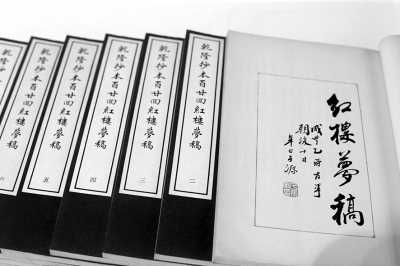 紅樓夢稿
咸豐乙卯古華
朝後十日
于源
乾隆抄本百廿回紅樓夢稿 二
乾隆抄本百廿回紅樓夢稿 三
乾隆抄本百廿回紅樓夢稿 四
乾隆抄本百廿回紅樓夢稿 五
乾隆抄本百廿回紅樓夢稿 六